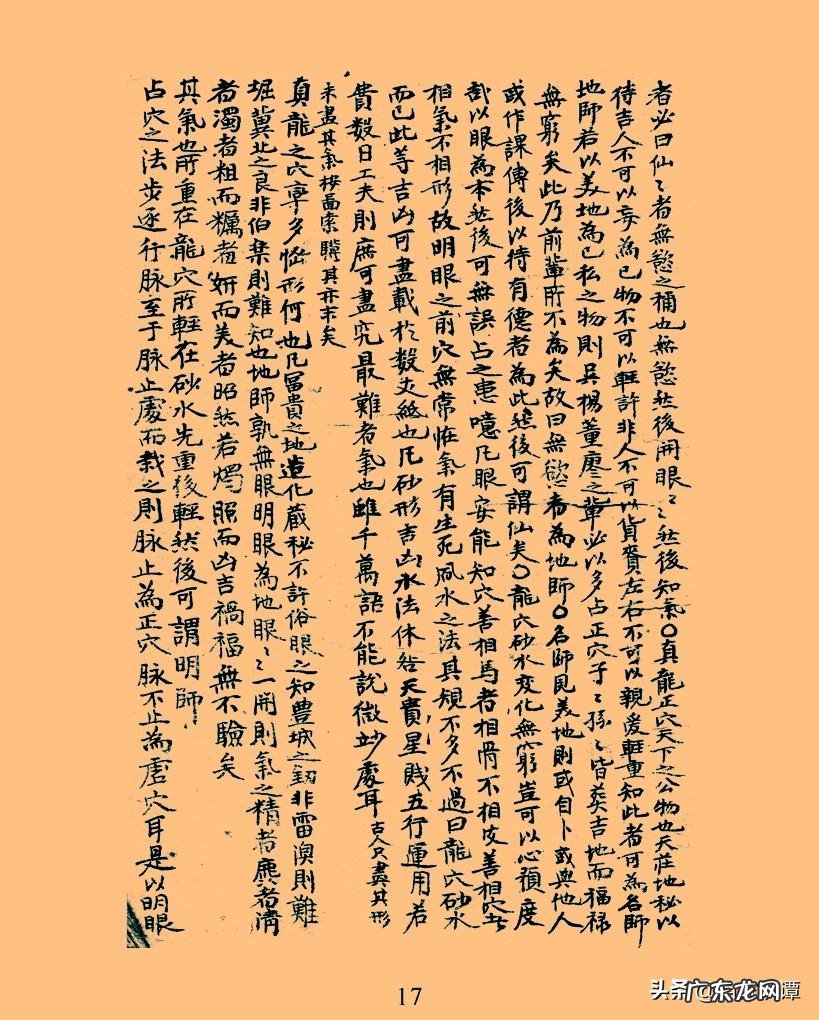 者必曰仙〻者無慾之稱也無慾然後開眼〻然後知氣〇真龍正穴天下之公物也天莊地秘以
待吉人不可以妄為己物不可以輕許非人不可以貨賚左右不可以親爰輕重知此者可為名師
地師若以美地為已私之物則吳楊董廖之輩必以多占正穴子〻孫〻皆葬吉地而福禄
無窮矣此乃前輩所不為矣故曰無慾者為地師〇名師見美地則或自卜或與他人
或作課傳後以待有德者為此然後可謂仙矣〇龍穴砂水变化無窮豈可以心預度
哉以眼為本然後可無誤占之患噫凡眼安能知穴善相馬者相骨不相皮善相穴者
相氣不相形故明眼之前穴無常恠氣有生死風水之法其規不多不過曰龍穴砂水
而已此等吉凶可盡載於数丈紙也凡砂形吉凶水法休咎天貴星賤五行運用若
費数日工夫則庶可盡究最難者氣也雖千萬語不能說微妙處耳古人只盡其形
未盡其氣按啚索驥其亦末矣
真龍之穴寧多恠形何也凡冨貴之地造化蔵秘不許俗眼之知豊城之釼非雷渙則難
堀冀北之良非伯樂則難知也地師孰無眼明眼為地眼〻一開則氣之精者麁者清
者濁者粗而糲者妍而美者昭然若燭照而凶吉禍福無不驗矣
其氣也所重在龍穴所輕在砂水先重後輕然後可謂明師
占穴之法步逐行脉至于脉止處而栽之則脉止為正穴脉不止為虛穴耳是以明眼
17
头条 广东龙网